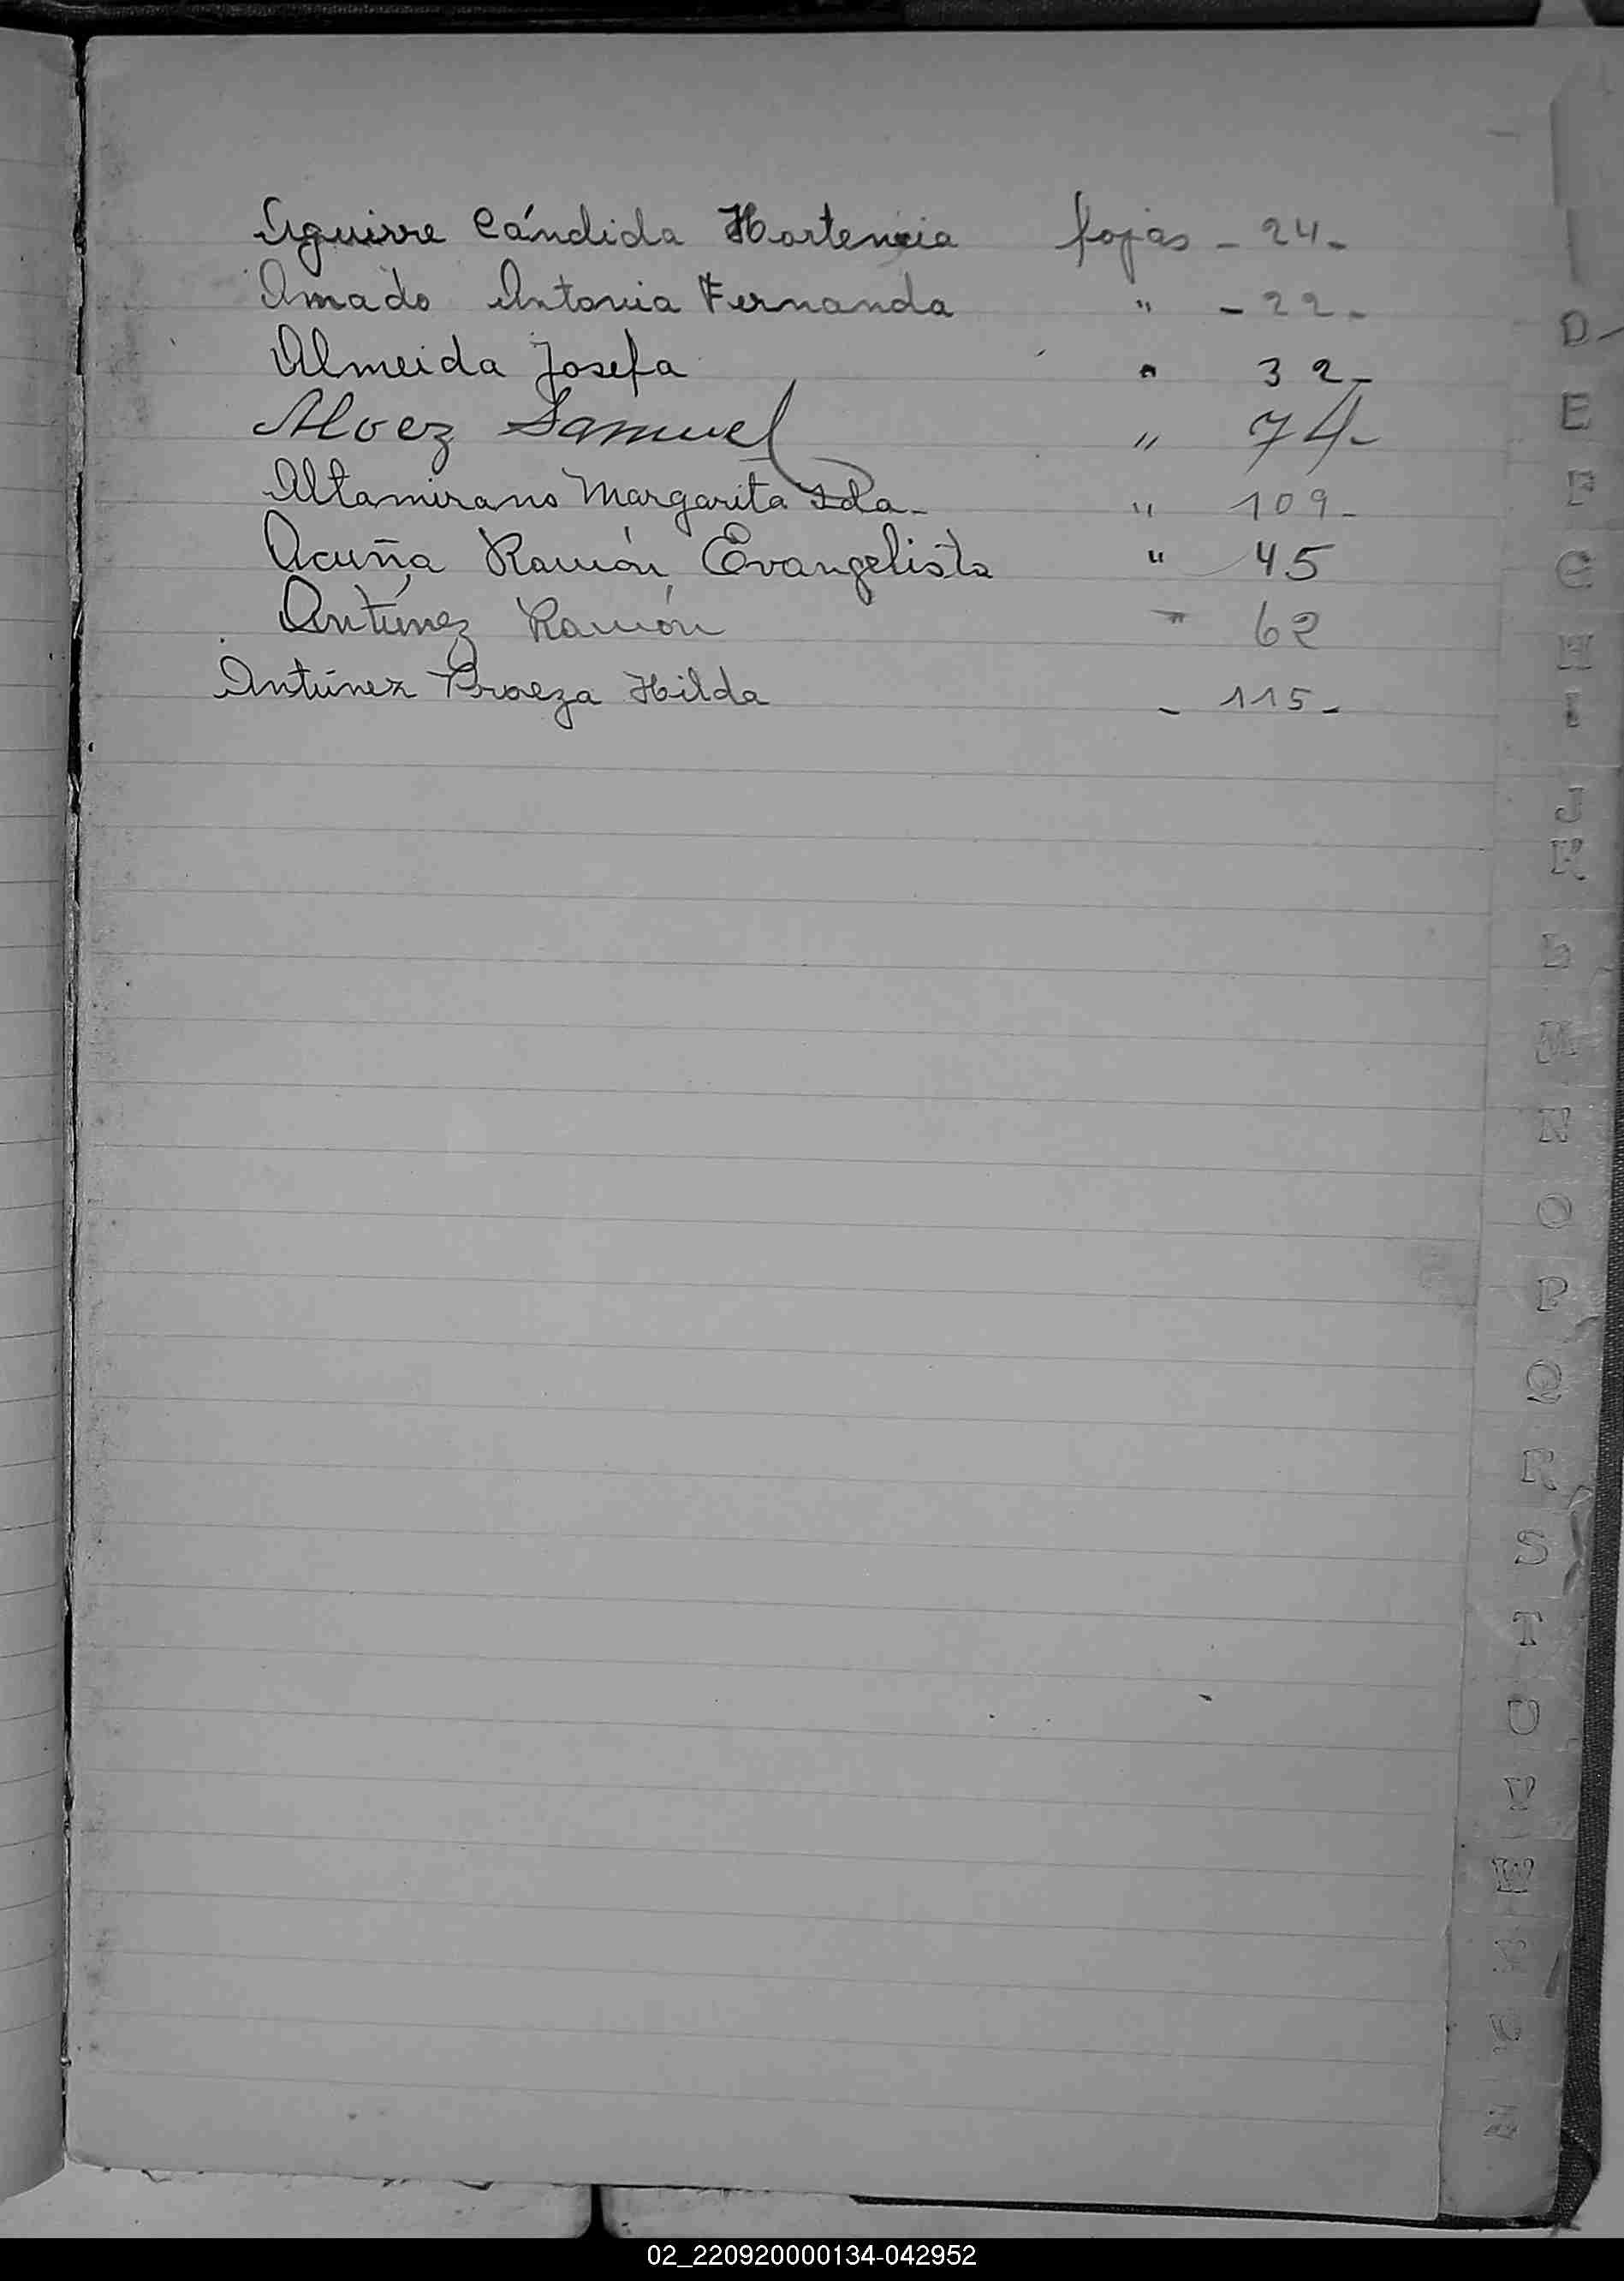 Aguirre Cándida Hortencia fojas - 24 -
Amado Antonia Fernanda " - 22 -
Almeida Josefa " 32 -
Alvez Samuel " 74 -
Altamirano Margarita Ida - " 109 -
Acuña Ramón Evangelista " 45
Antúnez Ramón " 62
Antúnez Proeza Hilda - 115 -
D
E
F
G
H
I
J
K
L
M
N
O
P
Q
R
S
T
U
V
W
X
Y
Z
02_220920000134-042952